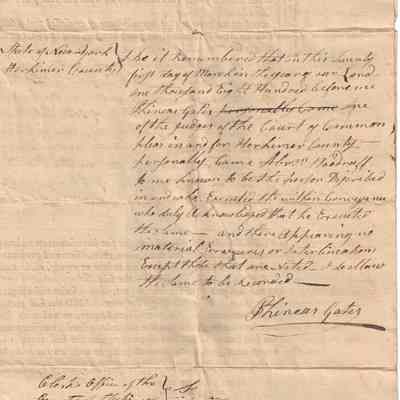 State of New York
Herkimer County
Be it remembered that on this twenty
first day of March in the year one
thousand Eight Hundred before me
Phineas Gates personally Came one
of the Judges of the Court of Common
pleas in and for Herkimer County
personally Came Woodruff
to me known to be the person Discribed
in and who Executed the within Conveyance
who duly Acknowledged that he Executed
the same — and there Appearing no
material Erasures or Interlineations
Except those that are Noted I do allow
the same to be recorded
Phineas Gates
Clerks Office of the